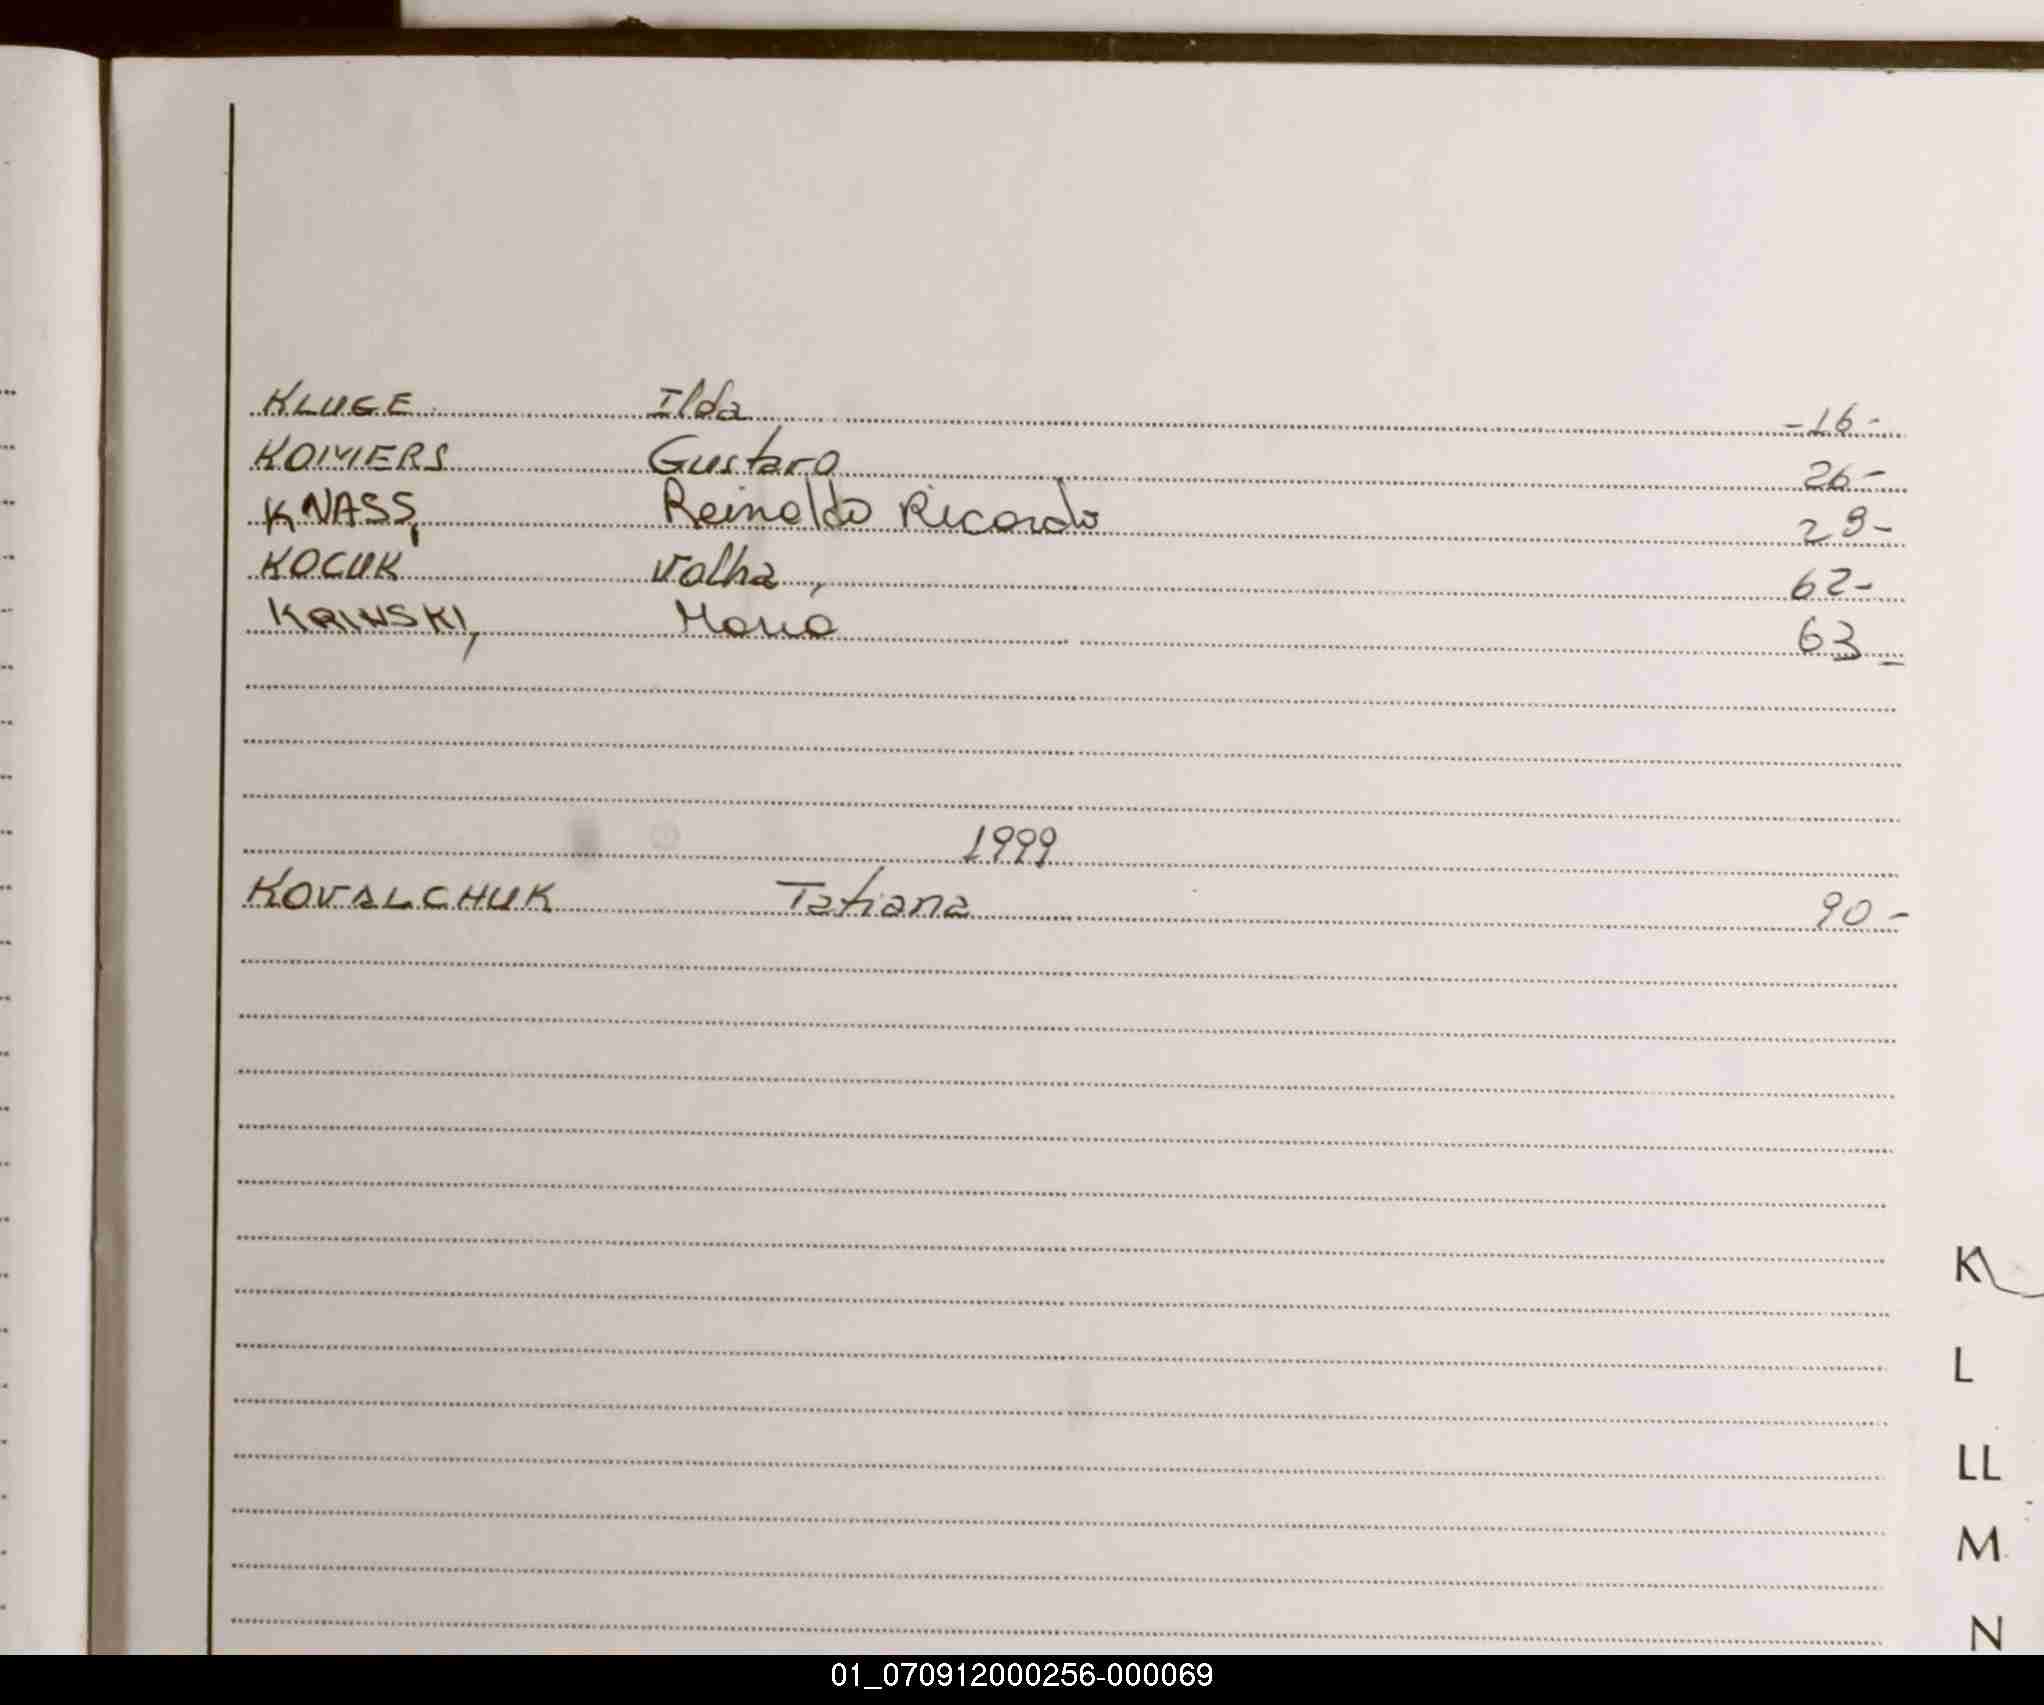 KLUGE Ilda -16-
KOMERS Gustavo 26-
KNASS, Reinaldo Ricardo 29-
KOCUK Volha, 62-
KRINSKI, Maria 63-
1999
KOVALCHUK Tatiana 90-
K
L
LL
M
N
01_070912000256-000069